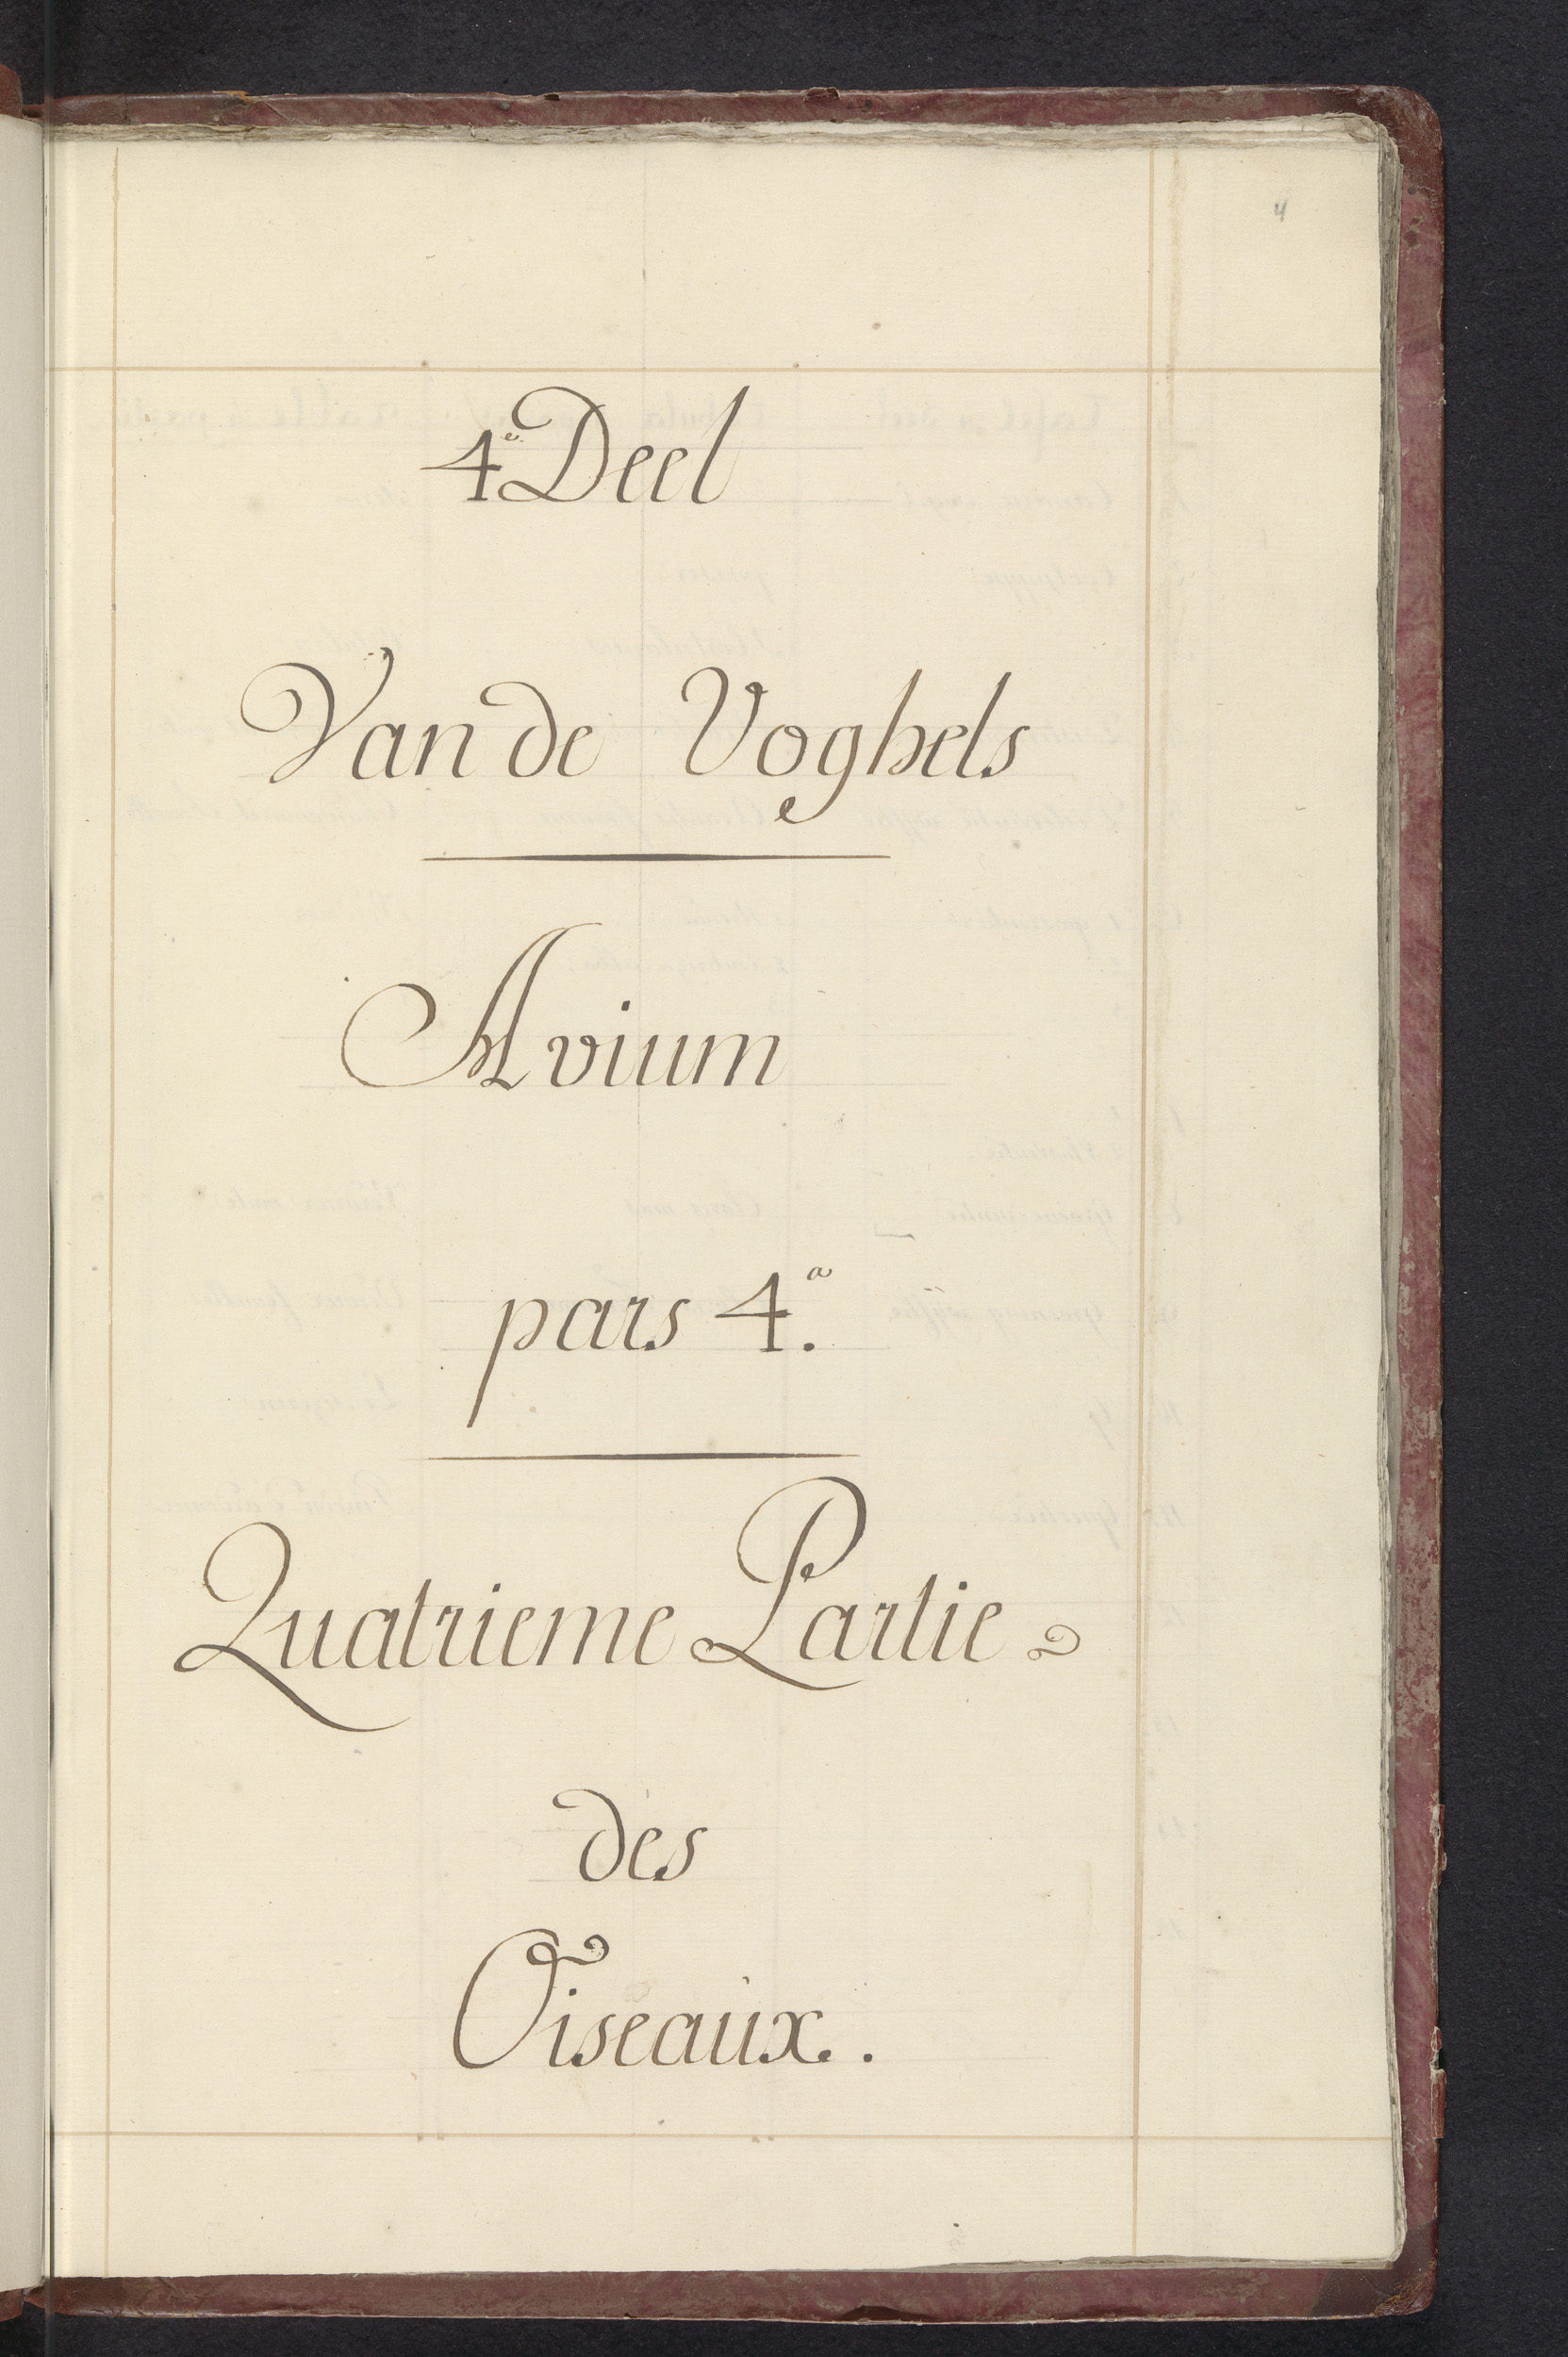 4
4e Deel
Van de Voghels
Avium
pars 4.a
Quatrieme Partie
des
Oiseaux.